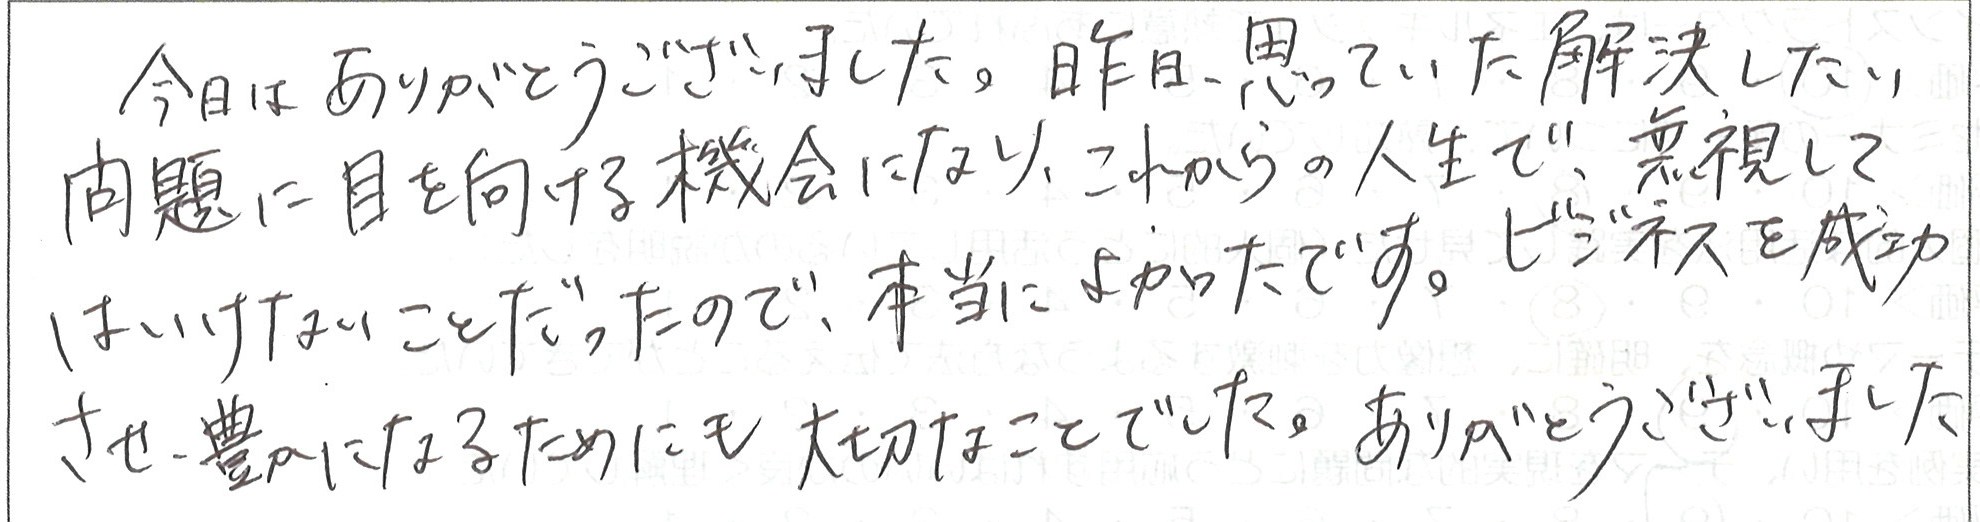 今日はありがとうございました。昨日、思っていた解決したい
問題に目を向ける機会になり、これからの人生で、無視して
はいけないことだったので、本当によかったです。ビジネスを成功
させ、豊かになるためにも大切なことでした。ありがとうございました